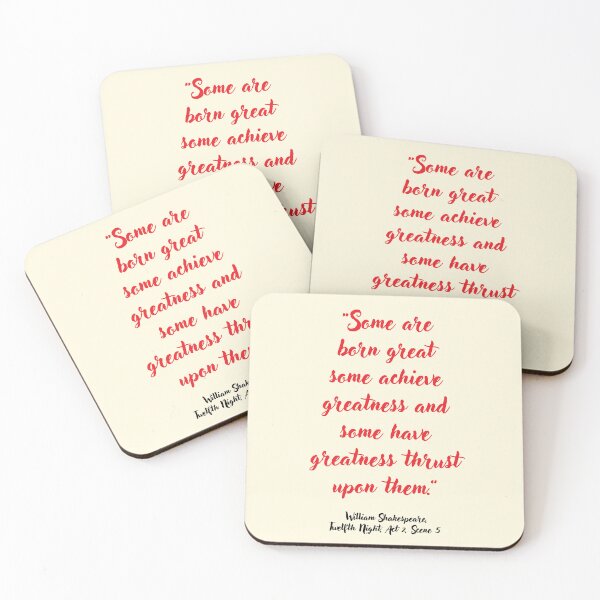 "Some are
born great
some achieve
greatness and
thrust
"Some are
born great
some achieve
greatness and
some have
greatness thrust
"Some are
born great
some achieve
greatness and
some have
greatness
upon
William
Twelfth Night,
"Some are
born great
some achieve
greatness and
some have
greatness thrust
upon them."
William Shakespeare,
Twelfth Night, Act 2, Scene 5